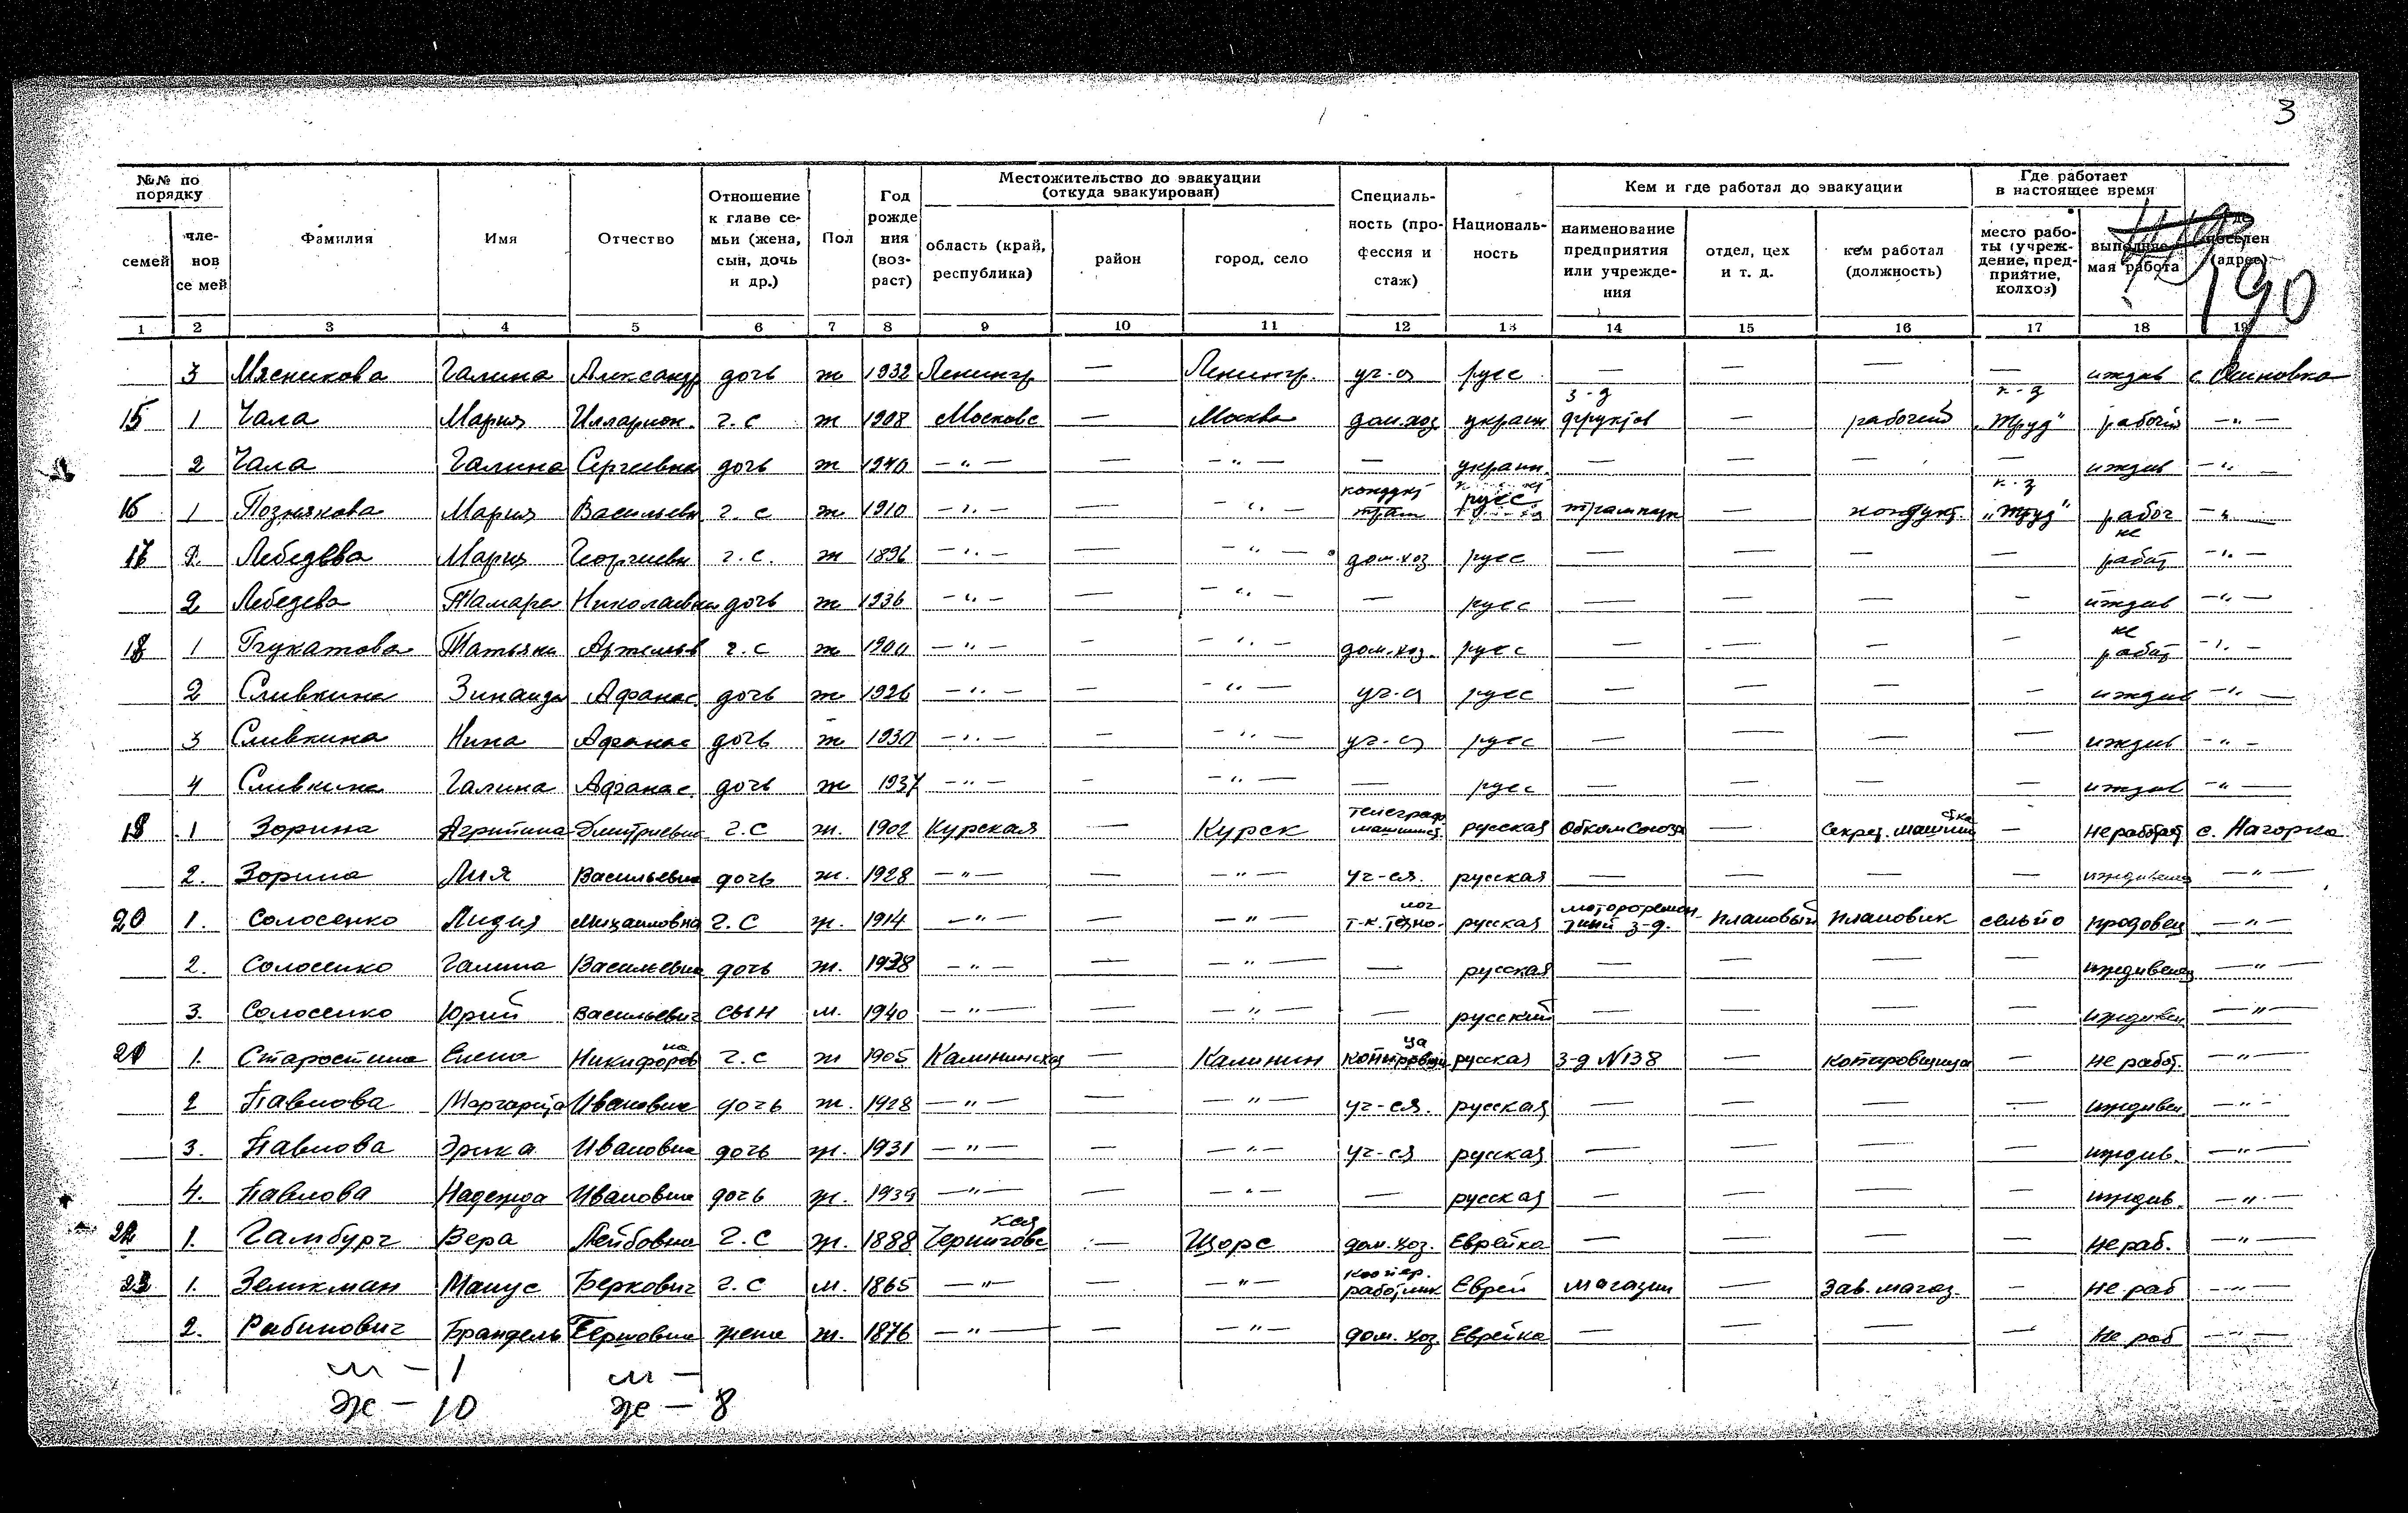 3
№№ по порядку
Фамилия Имя Отчество Отношение к главе се- мьи (жена, сын, дочь и др.) Пол Год рожде ния (воз- раст) Местожительство до эвакуации (откуда эвакуирован) Специаль- ность (про- фессия и стаж) Националь- ность Кем и где работал до эвакуации Где работает в настоящее время
семей чле- нов се мей область (край, республика) район город, село наименование предприятия или учрежде- ния отдел, цех и т. д. кем работал (должность) место рабо- ты (учреж- дение, пред- приятие, колхоз) выполняе- мая работа поселен (адрес)
190
1 2 3 4 5 6 7 8 9 10 11 12 13 14 15 16 17 18 19
3 Мясникова Галина Александр дочь ж 1932 Ленингр — Ленингр. уч-ся русс — — — — иждив с. Осиновка
15 1 Чала Мария Илларион. г. с ж 1908 Московс — Москва дом.хоз украин з-д фруктов — рабочий к-з „Труд" рабочий —"—
2 Чала Галина Сергеевна дочь ж 1940 —"— — —"— — украин. — — — — иждив —"—
16 1 Познякова Мария Васильевн г. с ж 1910 —"— — —"— кондукт трам русс трампарк — кондукт. к-з „Труд" рабоч —"—
17 Лебедева Мария Георгиевн г. с. ж 1896 —"— — —"— дом.хоз русс — — — — не работ —"—
2 Лебедева Тамара Николаевна дочь ж 1936 —"— — —"— — русс — — — — иждив —"—
18 1 Татьяна Артемьев г. с ж 1900 —"— — —"— дом.хоз. русс — — — — не работ —"—
2 Сливкина Зинаида Афанас. дочь ж 1926 —"— — —"— уч-ся русс — — — — иждив —"—
3 Сливкина Нина Афанас дочь ж 1930 —"— — —"— уч-ся русс — — — — иждив —"—
4 Сливкина Галина Афанас. дочь ж 1937 —"— — —"— — русс — — — — иждив —"—
1 Зорина Агрипина Дмитриевна г. с ж. 1902 Курская — Курск телеграф машинист. русская Обком Союза — Секрет. машинистка — не работает с. Нагорка
2. Зорина Лия Васильевна дочь ж. 1928 —"— — —"— уч-ся. русская — — — — иждивенец —"—
20 1. Солосенко Лидия Михаиловна г. с ж. 1914 —"— — —"— т-к. Техно- лог русская моторремонтный з-д. плановый плановик сельпо продавец —"—
2. Солосенко Галина Васильевна дочь ж. 1938 —"— — —"— — русская — — — — иждивенец —"—
3. Солосенко Юрий Васильевич сын м. 1940 —"— — —"— — русский — — — — иждивен. —"—
21 1. Старостина Елена Никифоровна г. с ж 1905 Калининская — Калинин копировщица русская з-д №138 — копировщица — не работ. —"—
2 Павлова Маргарита Ивановна дочь ж. 1928 —"— — —"— уч-ся. русская — — — — иждивен —"—
3. Павлова Эрика Ивановна дочь ж. 1931 —"— — —"— уч-ся русская — — — — иждив. —"—
4. Павлова Надежда Ивановна дочь ж. 1939 —"— — —"— — русская — — — — иждив. —"—
22 1. Гамбург Вера Лейбовна г. с ж. 1888 Черниговская — Щорс дом.хоз. Еврейка — — — — не раб. —"—
23 1. Зеликман Манус Беркович г. с м. 1865 —"— — —"— коопер. работник Еврей магазин — Зав. магаз. — не раб —"—
2. Рабинович Брандель Гершовна жена ж. 1876 —"— — —"— дом. хоз Еврейка — — — — не раб —"—
м — 1 м —
ж — 10 ж — 8